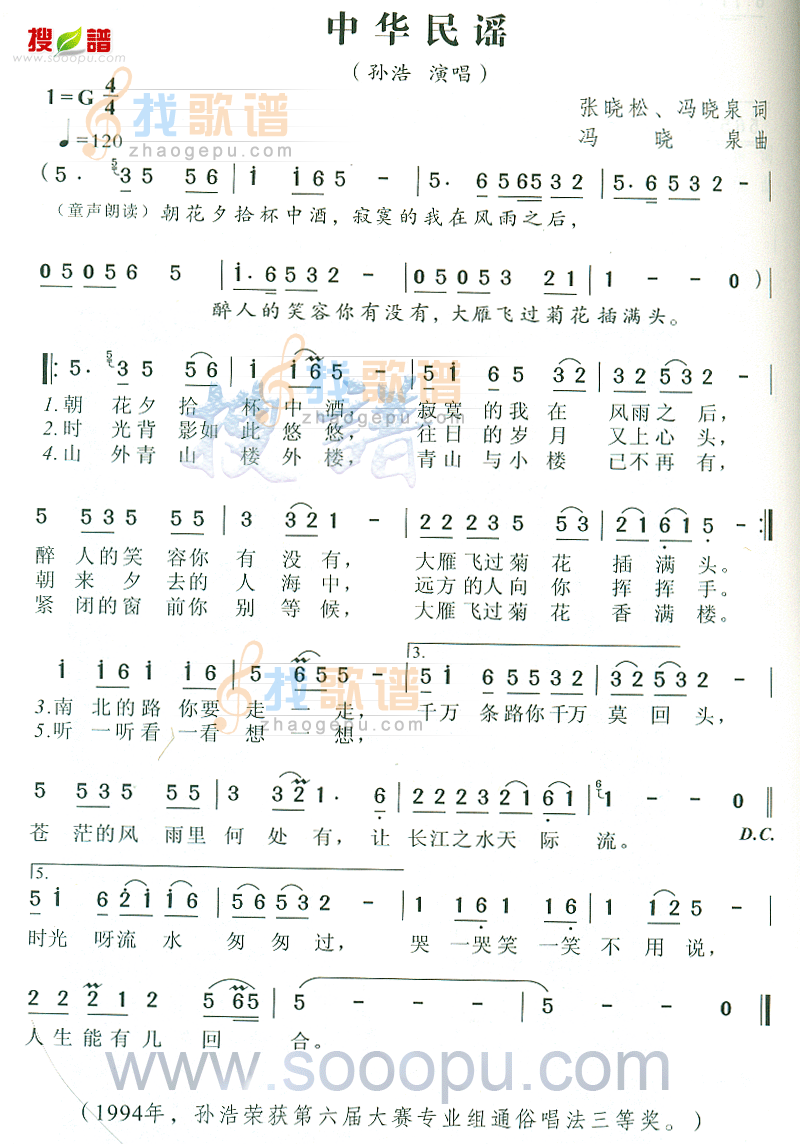 搜譜
www.sooopu.com
中华民谣
（孙浩 演唱）
1=G 4/4
♩=120
找歌谱
zhaogepu.com
张晓松、冯晓泉 词
冯 晓 泉 曲
( 5· 35 56 | i i65 - | 5· 6 56532 | 5·6532 - |
（童声朗读）朝花夕拾杯中酒，寂寞的我在风雨之后，
05056 5 | i·6532 - | 05053 21 | 1 - - 0 ) |
醉人的笑容你有没有，大雁飞过菊花插满头。
‖: 5· 35 56 | i i65 - | 5i 65 32 | 32532 - |
1.朝 花夕 拾 杯 中 酒， 寂寞 的我 在 风雨之 后，
2.时 光背 影如 此 悠 悠， 往日 的岁 月 又上心 头，
4.山 外青 山 楼 外 楼， 青山 与小 楼 已不再 有，
5 535 55 | 3 321 - | 22235 53 | 21615 - :‖
醉 人的笑 容你 有 没 有， 大雁飞过菊 花 插 满 头。
朝 来夕 去的 人 海 中， 远方的人向 你 挥 挥 手。
紧 闭的窗 前你 别 等 候， 大雁飞过菊 花 香 满 楼。
3.
i i6i i5 | 5 655 - | 5i 65653 | 32532 - |
3.南 北的路 你要 走 一 走， 千万 条路你千万 莫 回 头，
5.听 一听看 一看 想 一 想，
5 535 55 | 3 321· 6 | 22232161 | 1 - - 0 ‖
苍 茫的风 雨里 何 处 有，让 长江之水天 际 流。
D.C.
5.
5i 62ii6 | 56532 - | 1 161 16 | 1 125 - |
时光 呀流 水 匆 匆 过， 哭 一哭笑 一笑 不 用 说，
2 2 2 212 | 2 565 - | 5 - - - | 5 - - 0 ‖
人生能有几 回 合。
www.sooopu.com
（1994年，孙浩荣获第六届大赛专业组通俗唱法三等奖。）